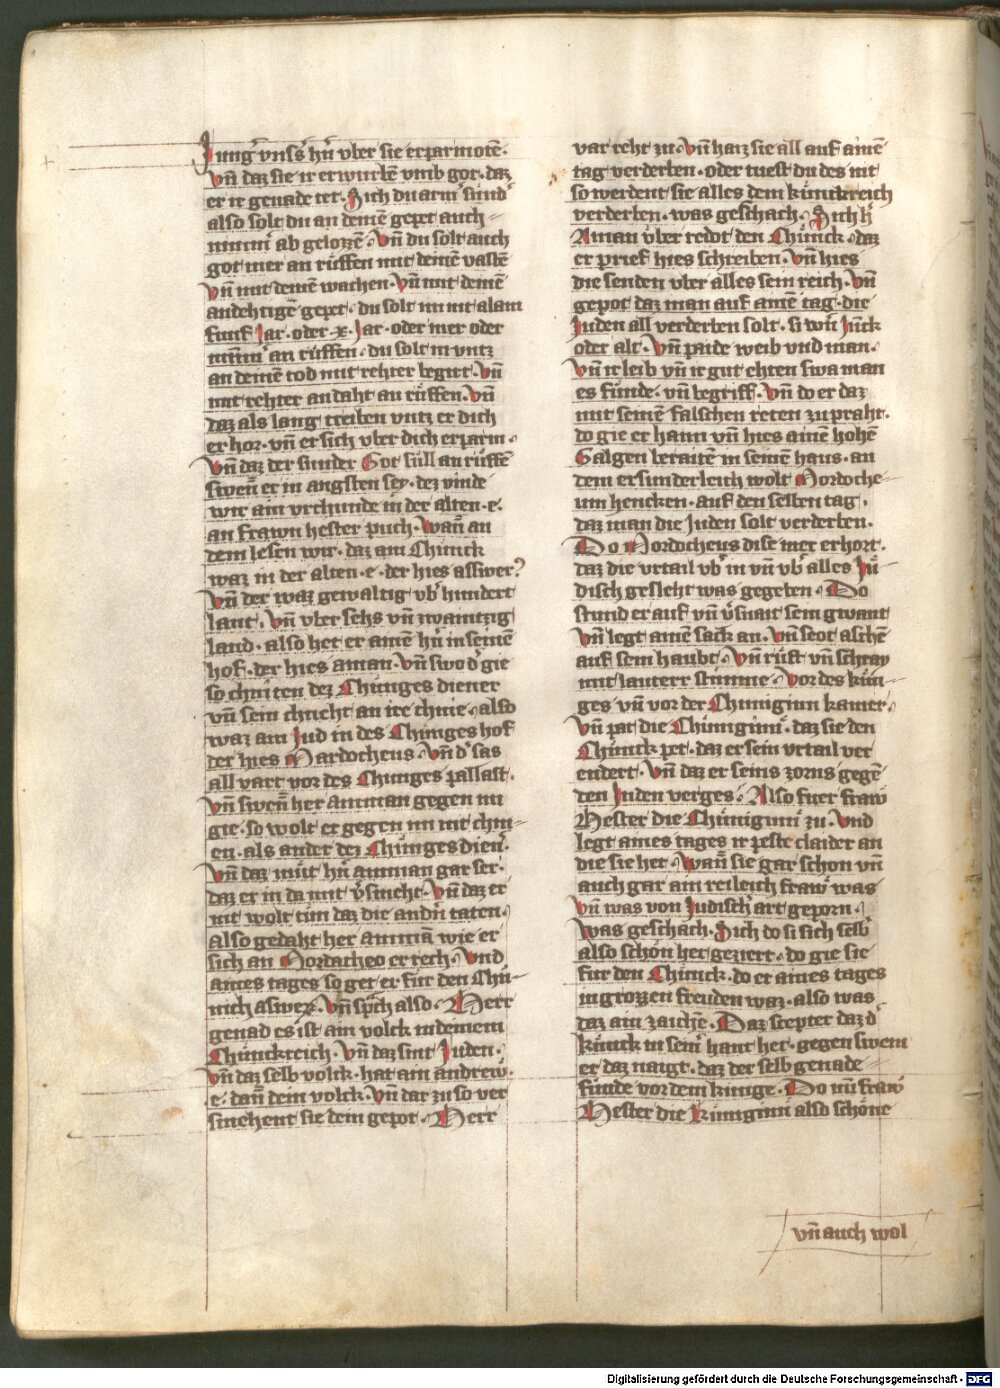 Jung͛ vnsˢ hn̄ vber sie erparmotē.
Vn̄ daz sie ir erwurbē vmb got. daz
er ir genade tet. Sich du arm͛ sund͛
also solt du an deinē gepet auch
nimm͛ ab gelozzē. Vn̄ du solt auch
got mer an rüffen mit deinē vastē
Vn̄ mit deinē wachen. Vn̄ mit deinē
andehtigē gepet. du solt in nit alain
funf Jar. oder .x. Jar. oder mer oder
minn͛ an rüffen. du solt in vntz
an deinē tod mit rehter begir. Vn̄
mit rehter andaht an rüffen. Vn̄
daz als lang treiben vntz er dich
erhor. vn̄ er sich vber dich erparm.
Vn̄ daz der sunder Got süll an rüffē
swen̄ er in angsten sey. dez vinde
wir ain vrchunde in der alten .e.
an frawn hester puch. Wan̄ an
dem lesen wir. daz ain Chünck
waz in der alten .e. der hies asswer͛
Vn̄ der waz gewaltig vb͛ hundert
lant. Vn̄ vber sehs vn̄ zwaintzig
land. also het er ainē hn̄ in seinē
hof. der hies aman. Vn̄ swo d͛ gie
so chniten dez Chünges diener
vn̄ sein chneht an ire chnie. also
waz ain Jud in des Chüniges hof
der hies Mardocheus. Vn̄ d͛ sas
all vart vor des Chuniges pallast.
Vn̄ swen̄ her amman gegen im
gie. so wolt er gegen im nit chni-
en. als ander dez Chüniges dien͛.
Vn̄ daz müt hn̄ amman gar ser.
daz er in da mit v͛smeht. Vn̄ daz er
nit wolt tun daz die andn̄ taten.
Also gedaht her ammā wie er
sich an Mordacheo er rech. Vnd
aines tages so get er für den Chü-
nich aswer. Vn̄ sprch also. Herr
genad es ist ain volck in deinem
Chünckreich. Vn̄ daz sint Juden.
Vn̄ daz selb volck. hat ain andrew
.e. dan̄ dem volck. Vn̄ dar zu so ver
smehent sie dein gepot. Herr
var reht zu. Vn̄ haiz sie all auf ainē
tag verderben. oder tuest du des nit
so werdent sie alles dem künckreich
verderben. was geschach. Sich h͛
Aman vber redot den Chünck. daz
er prief hies schreiben. Vn̄ hies
die senden vber alles sein reich. Vn̄
gepot daz man auf ainē tag. die
Juden all verderben solt. si wn̄ Junck
oder alt. Vn̄ paide weib vnd man.
Vn̄ ir leib vn̄ ir gut ehten swa man
es fünde. vn̄ begriff. Vn̄ do er daz
mit seinē falschen reten zu praht.
do gie er haim vn̄ hies ainē hohē
Galgen beraitē in seinē haus. an
dem er sunderleich wolt Mordoche-
um hencken. auf den selben tag.
daz man die Juden solt verderben.
Do Mordocheus dise mer erhort.
daz die vrtail vb͛ in vn̄ vb͛ alles Jü-
disch gesleht was gegeben. Do
stund er auf vn̄ v͛snait sein gwant
Vn̄ legt ainē sack an. Vn̄ seot aschē
auf sein haubt. Vn̄ rüft vn̄ schray
mit lauterr stimme. Vor des kün-
ges vn̄ vor der Chünigiun kamer.
Vn̄ pat die Chünigiñ. daz sie den
Chünick pet. daz er sein vrtail ver
endert. Vn̄ daz er seins zorns gegē
den Juden verges. Also fuer fraw
Hester die Chüniginn zu. Vnd
legt aines tages ir peste claider an
die sie het. Wan̄ sie gar schon vn̄
auch gar ain reileich fraw was
Vn̄ was von Judisch͛ art geporn.
Was geschach. Sich do si sich selb͛
also schön het geziert. do gie sie
für den Chünick. do er aines tages
in grozzen freuden waz. also was
daz ain zaichē. Daz scepter daz d͛
künck in sein͛ hant het. gegen swem
er daz naigt. daz der selb genade
fünde vor dem künge. Do nu fraw
Hester die Küniginn also schöne
vn̄ auch wol
Digitalisierung gefördert durch die Deutsche Forschungsgemeinschaft - DFG